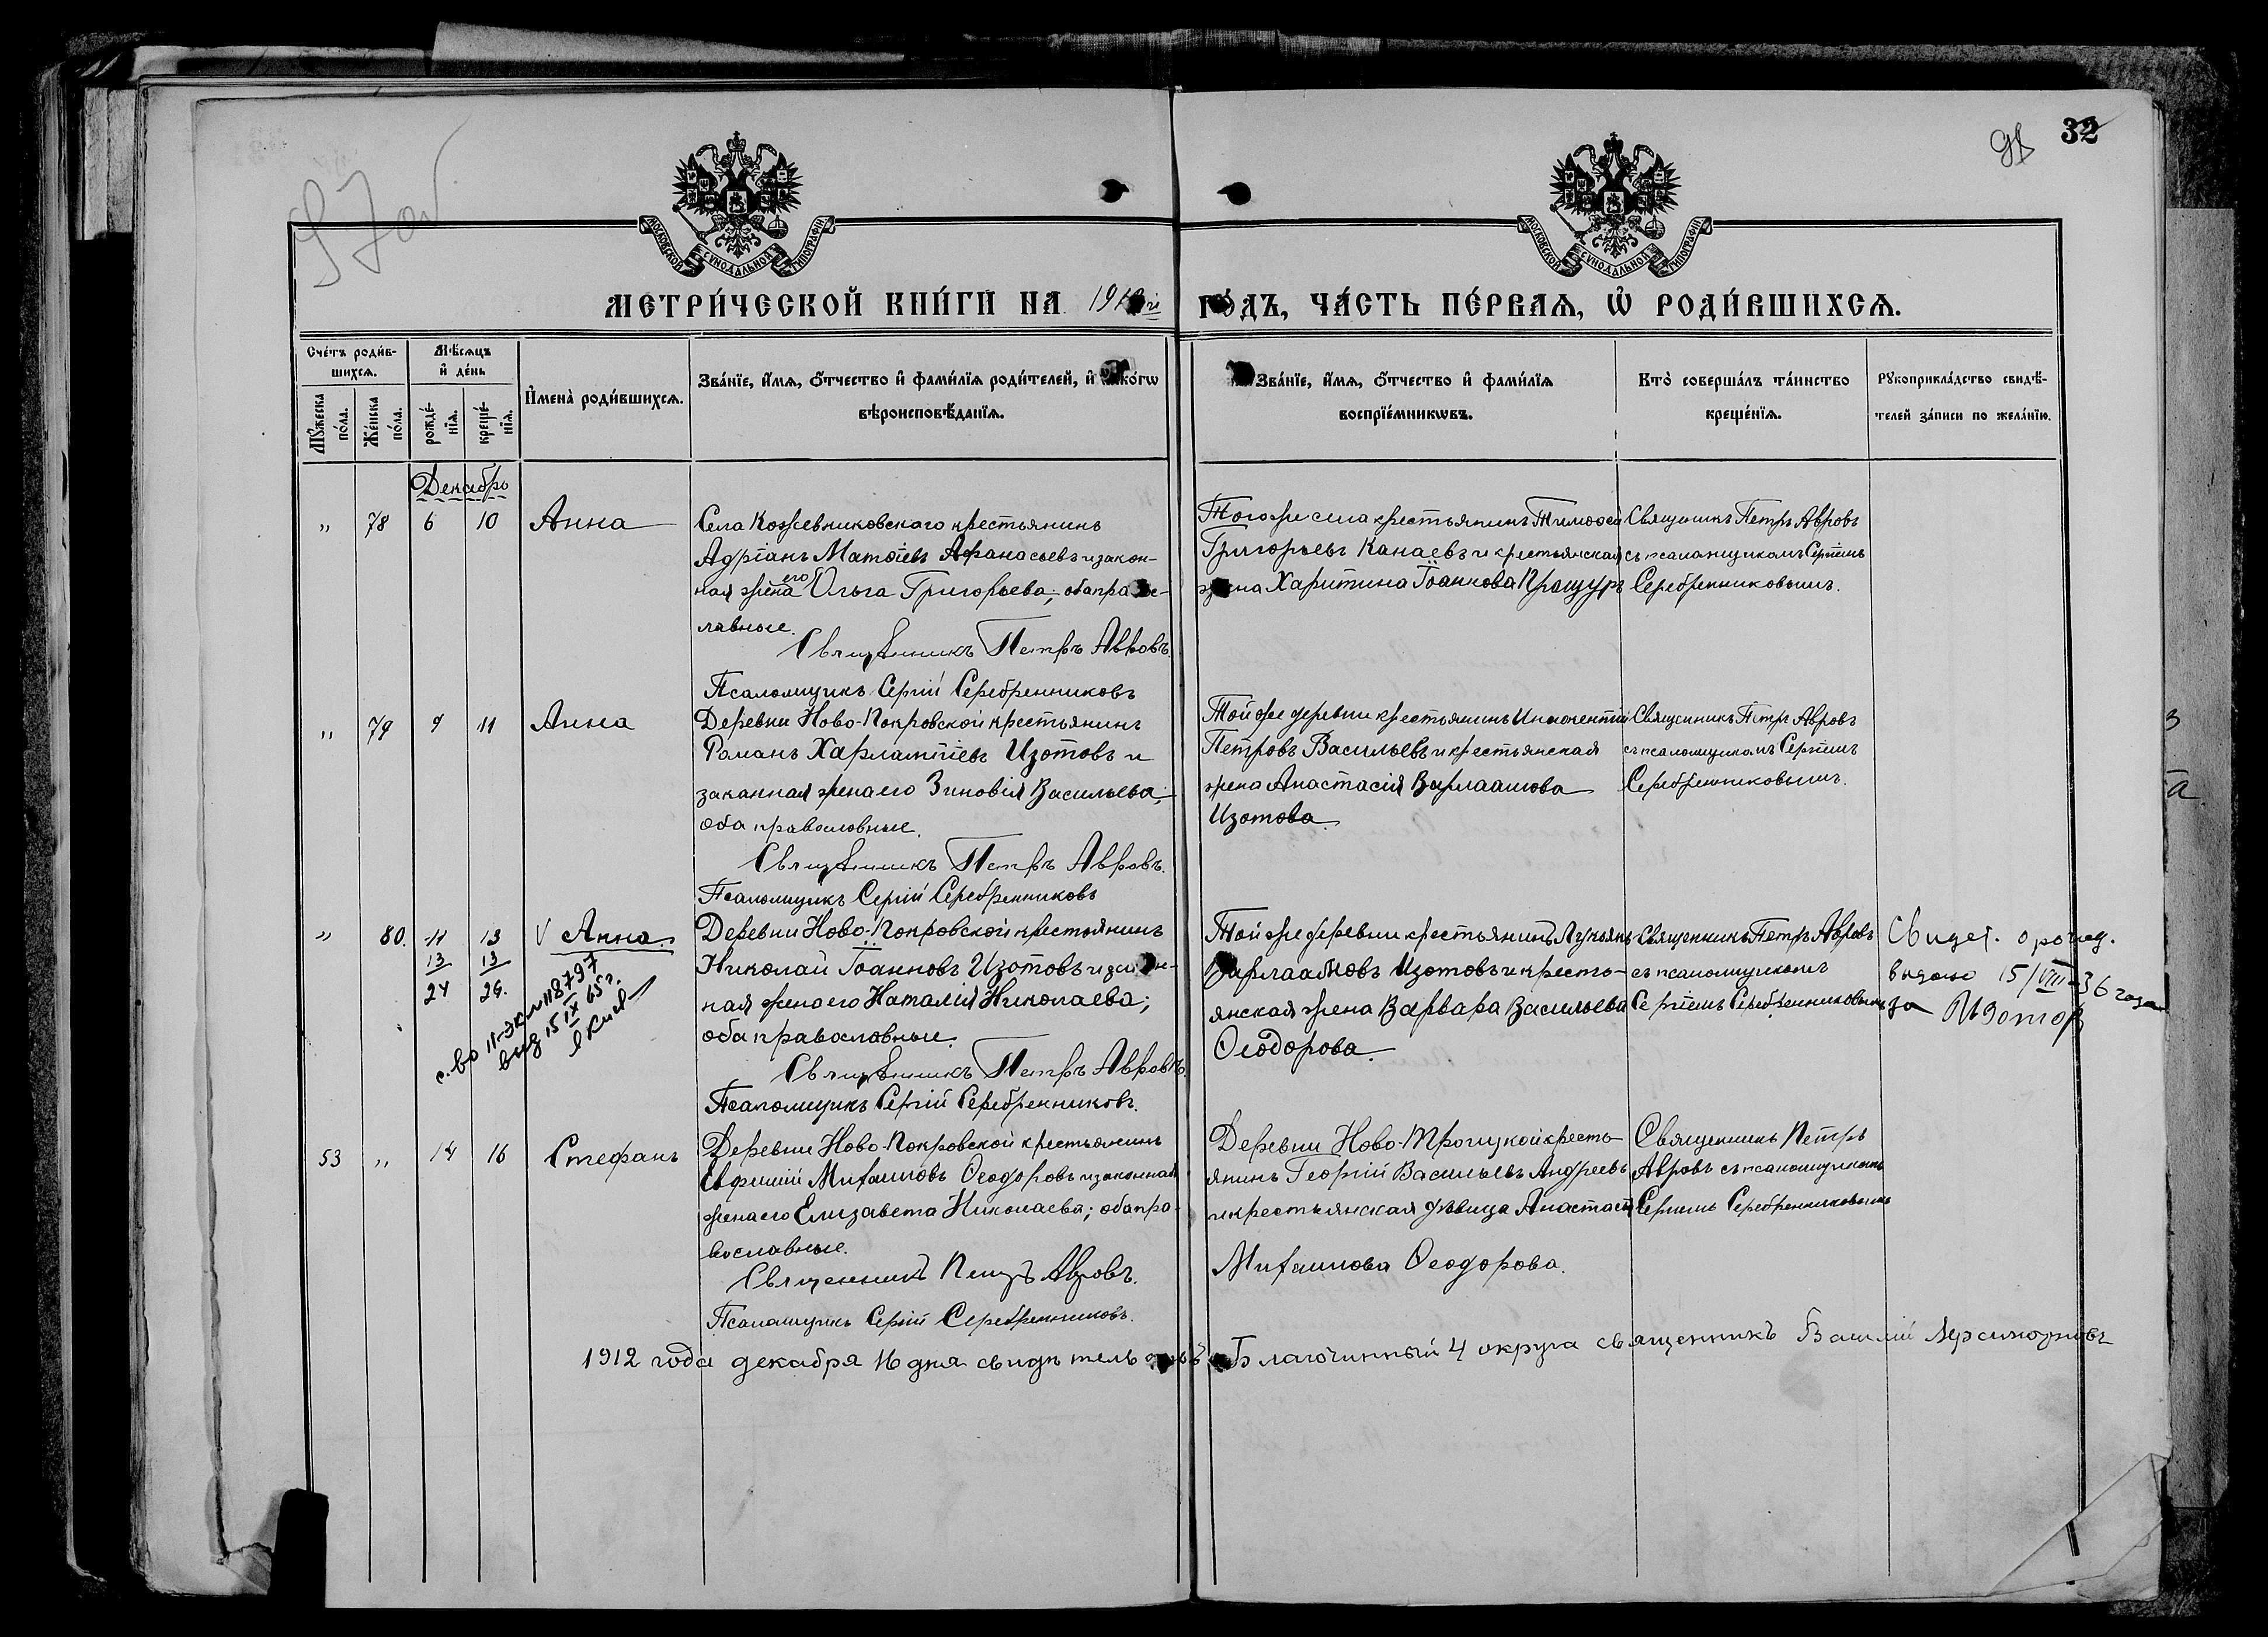 32
МОСКОВСКОЙ СѴНОДАЛЬНОЙ ТИПОГРАФІИ
МОСКОВСКОЙ СѴНОДАЛЬНОЙ ТИПОГРАФІИ
МЕТРИ́ЧЕСКОЙ КНИ́ГИ НА 191 ГО́ДЪ, ЧА́СТЬ ПЕ́РВАѦ, Ѽ РОДИ́ВШИХСѦ.
Сче́тъ роди́в-
шихсѧ.
Мꙋ́жеска по́ла.
Же́нска по́ла.
Мѣ́сѧцъ и҆ де́нь
рожде́-нїѧ.
креще́-нїѧ.
И҆мена̀ роди́вшихсѧ.
Зва́нїе, и҆́мѧ, ѻ҆́тчество и҆ фами́лїѧ роди́телей, и҆ како́гѡ
вѣроисповѣ́данїѧ.
Зва́нїе, и҆́мѧ, ѻ҆́тчество и҆ фами́лїѧ
воспрїе́мникѡвъ.
Кто̀ соверша́лъ та́инство
креще́нїѧ.
Рꙋкоприкла́дство свидѣ́-
телей за́писи по жела́нїю.
Декабрь
" 78 6 10 Анна
Села Кожевниковскаго крестьянинъ
Адріанъ Матѳіевъ Афанасьевъ и закон-
ная жена его Ольга Григорьева; оба правос-
лавные.
Священникъ Петръ Авровъ.
Псаломщикъ Сергій Серебренниковъ
Того же села крестьянинъ Тимоѳей
Григорьевъ Канаевъ и крестьянская
жена Харитина Іоаннова Прощуръ
Священникъ Петръ Авровъ
съ псаломщикомъ Сергіемъ
Серебренниковымъ.
" 79 9 11 Анна
Деревни Ново-Покровской крестьянинъ
Романъ Харлампіевъ Изотовъ и
законная жена его Зиновія Васильева;
оба православные.
Священникъ Петръ Авровъ.
Псаломщикъ Сергій Серебренниковъ
Той же деревни крестьянинъ Иннокентій
Петровъ Васильевъ и крестьянская
жена Анастасія Варлаамова
Изотова.
Священникъ Петръ Авровъ
съ псаломщикомъ Сергіемъ
Серебренниковымъ.
" 80. 11 13 V Анна.
13 13
24 26.
с.во 11-ЭК №118797
выд 15 IX 65г.
Деревни Ново-Покровской крестьянинъ
Николай Іоанновъ Изотовъ и закон-
ная жена его Наталія Николаева;
оба православные.
Священникъ Петръ Авровъ.
Псаломщикъ Сергій Серебренниковъ.
Той же деревни крестьянинъ Лукьянъ
Варлаамовъ Изотовъ и кресть-
янская жена Варвара Васильева
Ѳеодорова.
Священникъ Петръ Авровъ
съ псаломщикомъ
Сергіемъ Серебренниковымъ
Свидет. о рожд.
выдано 15/VIII-36 года
за Изотов
53 " 14 16 Стефанъ
Деревни Ново-Покровской крестьянинъ
Евфимій Михаиловъ Ѳеодоровъ и законная
жена его Елизавета Николаева; оба пра-
вославные.
Священникъ Петръ Авровъ.
Псаломщикъ Сергій Серебренниковъ.
Деревни Ново-Троицкой кресть-
янинъ Георгій Васильевъ Андреевъ
и крестьянская дѣвица Анастасія
Михаилова Ѳеодорова.
Священникъ Петръ
Авровъ съ псаломщикомъ
Сергіемъ Серебренниковымъ
1912 года декабря 16 дня свидѣтельств Благочинный 4 округа священникъ Василій